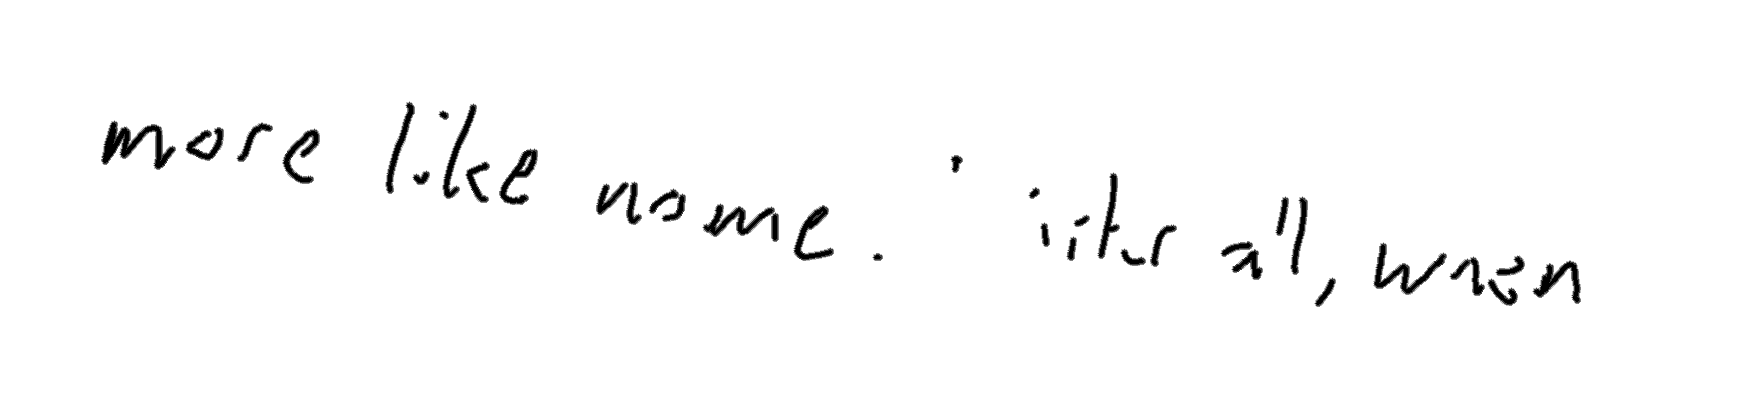 more like home. After all, when